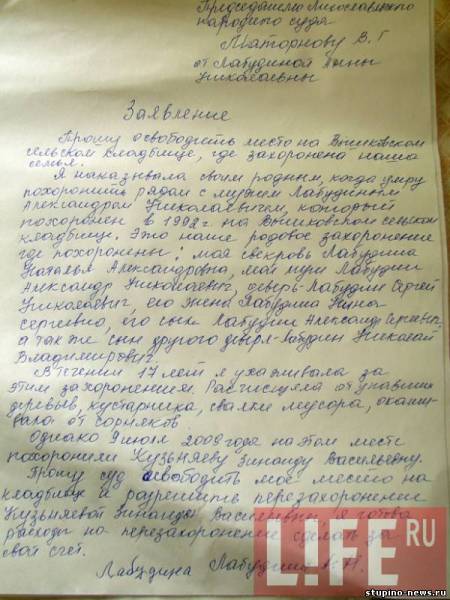 Председателю Лихославльского
народного суда
Маторнову В. Г
от Лабудиной Анны
Николаевны
Заявление
Прошу освободить место на Вышковском
сельском кладбище, где захоронена наша
семья.
Я наказывала своим родным, когда умру
похоронить рядом с мужем Лабудиным
Александром Николаевичем, который
похоронен в 1992 г на Вышковском сельском
кладбище. Это наше родовое захоронение
где похоронены: моя свекровь Лабудина
Наталья Александровна, мой муж Лабудин
Александр Николаевич, деверь-Лабудин Сергей
Николаевич, его жена Лабудина Нина
Сергеевна, его сын Лабудин Александр Сергеевич,
а так же сын другого деверя-Лабудин Николай
Владимирович.
В течении 17 лет я ухаживала за
этим захоронением. Расчищала от упавших
деревьев, кустарника, свалки мусора, окапы-
вала от сорняков.
Однако 9 июля 2009 года на этом месте
похоронили Кузьняеву Зинаиду Васильевну.
Прошу суд освободить мое место на
кладбище и разрешить перезахоронение
Кузьняевой Зинаиды Васильевны, я готова
расходы на перезахоронение сделать за
свой счет.
Лабудина Лабудина А. Н.
LIFE RU
stupino-news.ru